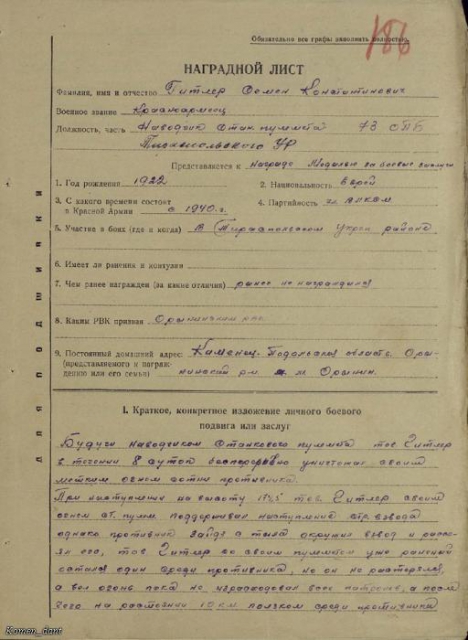 Обязательно все графы заполнить полностью.
186
НАГРАДНОЙ ЛИСТ
Фамилия, имя и отчество Гитлер Семен Константинович
Военное звание Красноармеец
Должность, часть Наводчик Стан. пулемета 73 ОПБ
Тираспольского УР
Представляется к Награде Медалью за боевые заслуги
1. Год рождения 1922 2. Национальность Еврей
3. С какого времени состоит
в Красной Армии с 1940 г. 4. Партийность чл. ВЛКСМ
5. Участие в боях (где и когда) В Тираспольском Укреп. районе
6. Имеет ли ранения и контузии
7. Чем ранее награжден (за какие отличия) ранее не награждался
8. Каким РВК призван Орынинским
9. Постоянный домашний адрес: Каменец-Подольская область Оры-
(представляемого к награж-
дению или его семьи) нинский р-н м. Орынин.
для подшивки
I. Краткое, конкретное изложение личного боевого
подвига или заслуг
Будучи наводчиком Станкового пулемета тов Гитлер
в течении 8 суток беспрерывно уничтожал своим
метким огнем сотни противника.
При наступлении на высоту 174,5 тов Гитлер своим
огнем ст. пулем. поддерживал наступление взвода
однако противник зайдя с тыла окружил взвод и рассе-
ял его, тов Гитлер со своим пулеметом уже раненый
остался один среди противника, но он не растерялся,
а вел огонь пока не израсходовал всех патронов, а после
чего на расстоянии 10 км ползком среди противника
Komen_dant